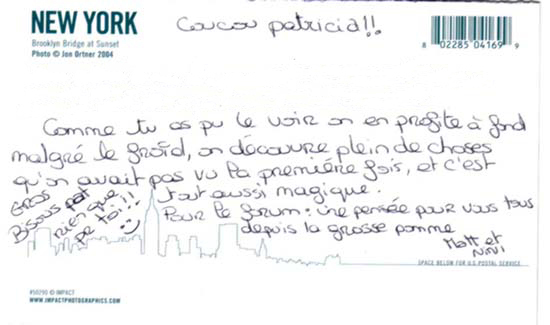 NEW YORK
Brooklyn Bridge at Sunset
Photo © Jon Ortner 2004
Coucou patricia!!
8 02285 04169 9
Comme tu as pu le voir on en profite à fond
malgré le froid, on découvre plein de choses
qu'on avait pas vu la première fois, et c'est
tout aussi magique.
Gros
Bisous
rien que
pr toi!!
Pour le forum : une pensée pour vous tous
depuis la grosse pomme
Matt et
NiNi
SPACE BELOW FOR U.S. POSTAL SERVICE
#50295 © IMPACT
WWW.IMPACTPHOTOGRAPHICS.COM